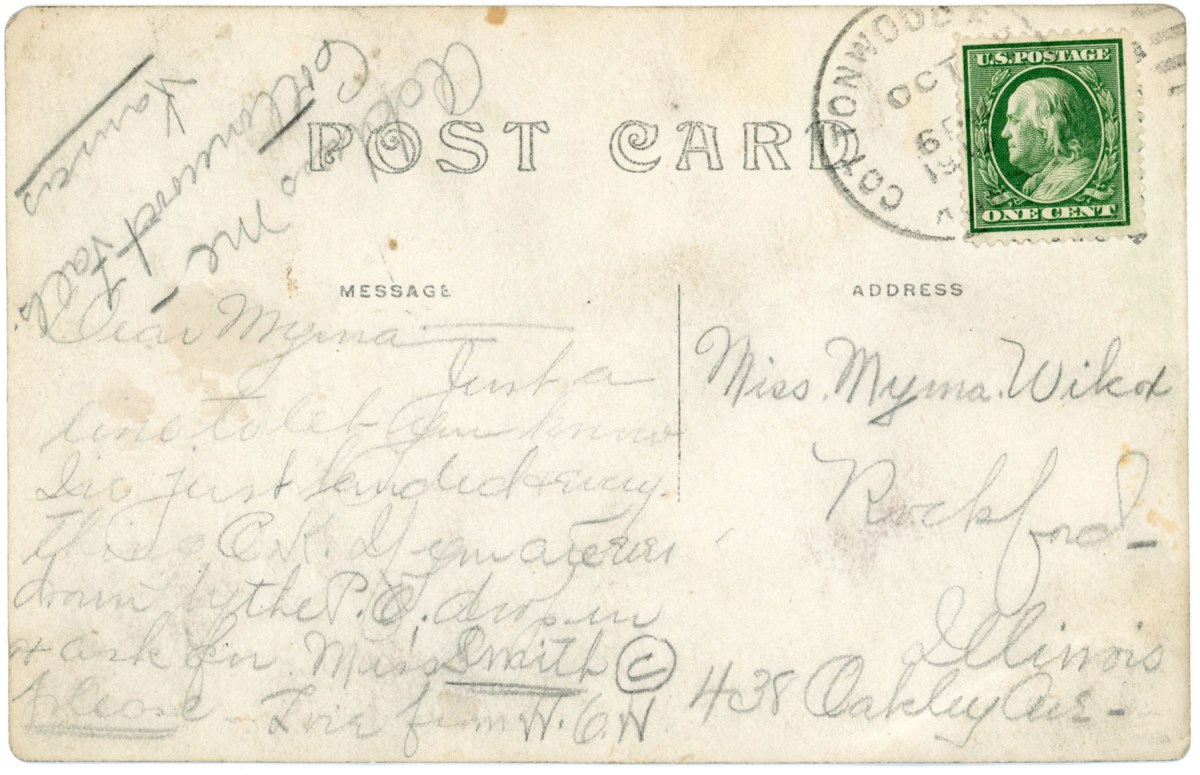 Address Me
Cottonwood Falls
Kansas
POST CARD
COTTONWOOD
OCT
6P
19
U.S. POSTAGE
ONE CENT
MESSAGE
ADDRESS
Dear Myrna
Just a
line to let you know
I've just landed &
thing O.K. If you are ever
down by the P.O. drop in
& ask for Miss Smith
Please - Love from H.O.H
Miss. Myrna. Wilcox
Rockford -
Illinois
438 Oakley Ave -